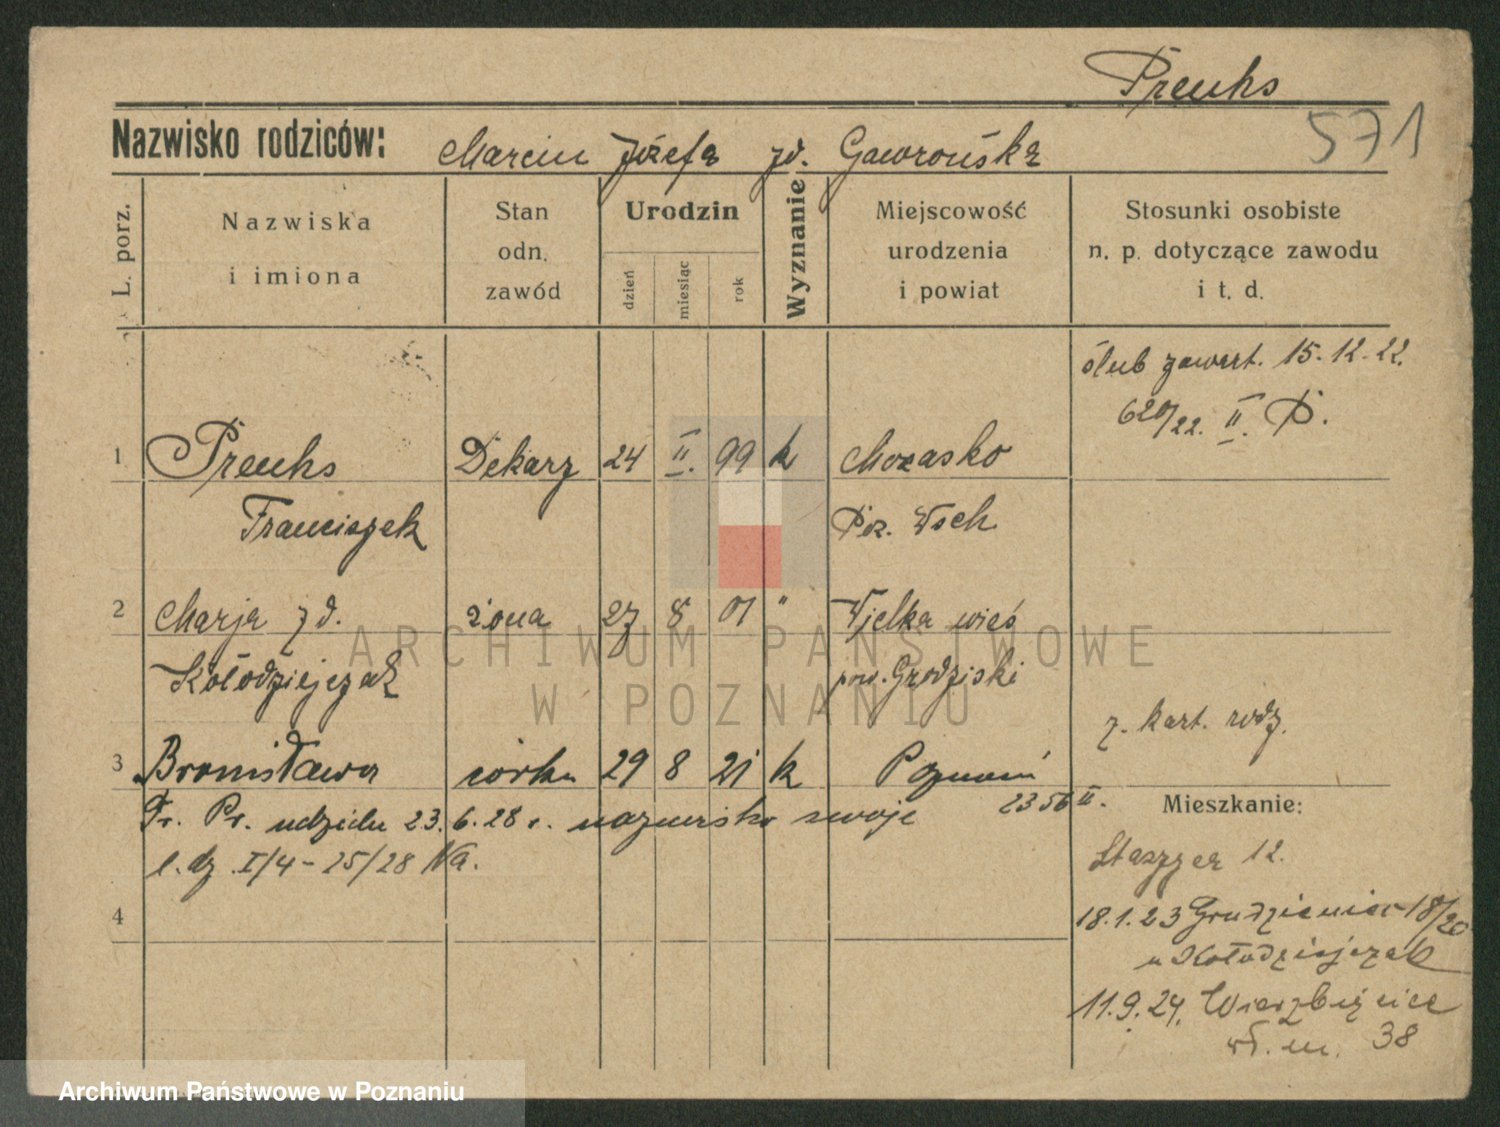 Preuhs
Nazwisko rodziców: Marcin Józefa zd. Gawrońska
571
L. porz.
Nazwiska
i imiona
Stan
odn.
zawód
Urodzin
dzień
miesiąc
rok
Wyznanie
Miejscowość
urodzenia
i powiat
Stosunki osobiste
n. p. dotyczące zawodu
i t. d.
ślub zawart. 15.12.22.
620/22. II. P.
1 Preuhs Dekarz 24 II. 99 k Morasko
Franciszek Poz. Wsch
2 Marja zd. żona 27 8 01 " Wielka wieś
Kołodziejczak pow. Grodziski
z. kart. rodz.
3 Bronisława córka 29 8 21 k Poznań
2356 II.
Fr. Pr. udziela 23.6.28 r. nazwisko swoje
l. dz. I/4-25/28 Na.
Mieszkanie:
Staszyca 12.
4
18.1.23 Grudzieniec 18/20
u Kołodziejczak
11.9.24. Wierzbięcice
wł. m. 38
ARCHIWUM PAŃSTWOWE
W POZNANIU
Archiwum Państwowe w Poznaniu